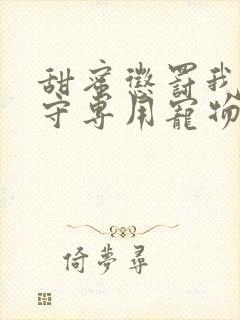 甜蜜懲罰我
守專用寵物
倚夢尋